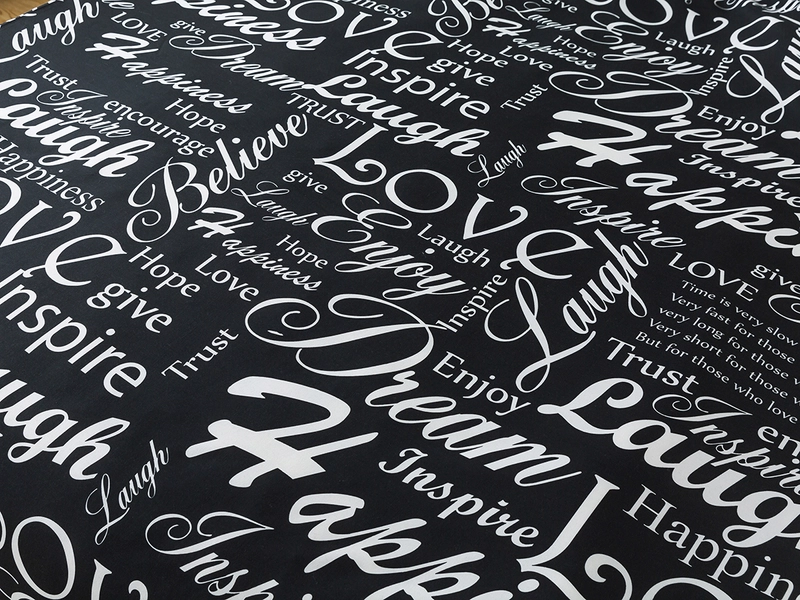 augh
LOVE
give
Happiness
Dream
Trust
Inspire
encourage
Hope
Laugh
Happiness
TRUST
Believe
LOVE
Inspire
give
Hope
Love
Happiness
Laugh
Enjoy
Hope
Laugh
Inspire
Trust
Laugh
Laugh
Dream
Enjoy
Happi
Inspire
Inspire
LOVE
give
Time is very slow
Very fast for those
very long for those
Very short for those
But for those who love
Trust
Inspire
en
Laug
Happin
give
Laugh
Happiness
Hope
Love
LOVe
Enjoy
Laugh
Inspire
Laugh
Ove
Hope
give
Inspire
Trust
Dream
Enjoy
augh
Laugh
Happi
Inspire
Insp